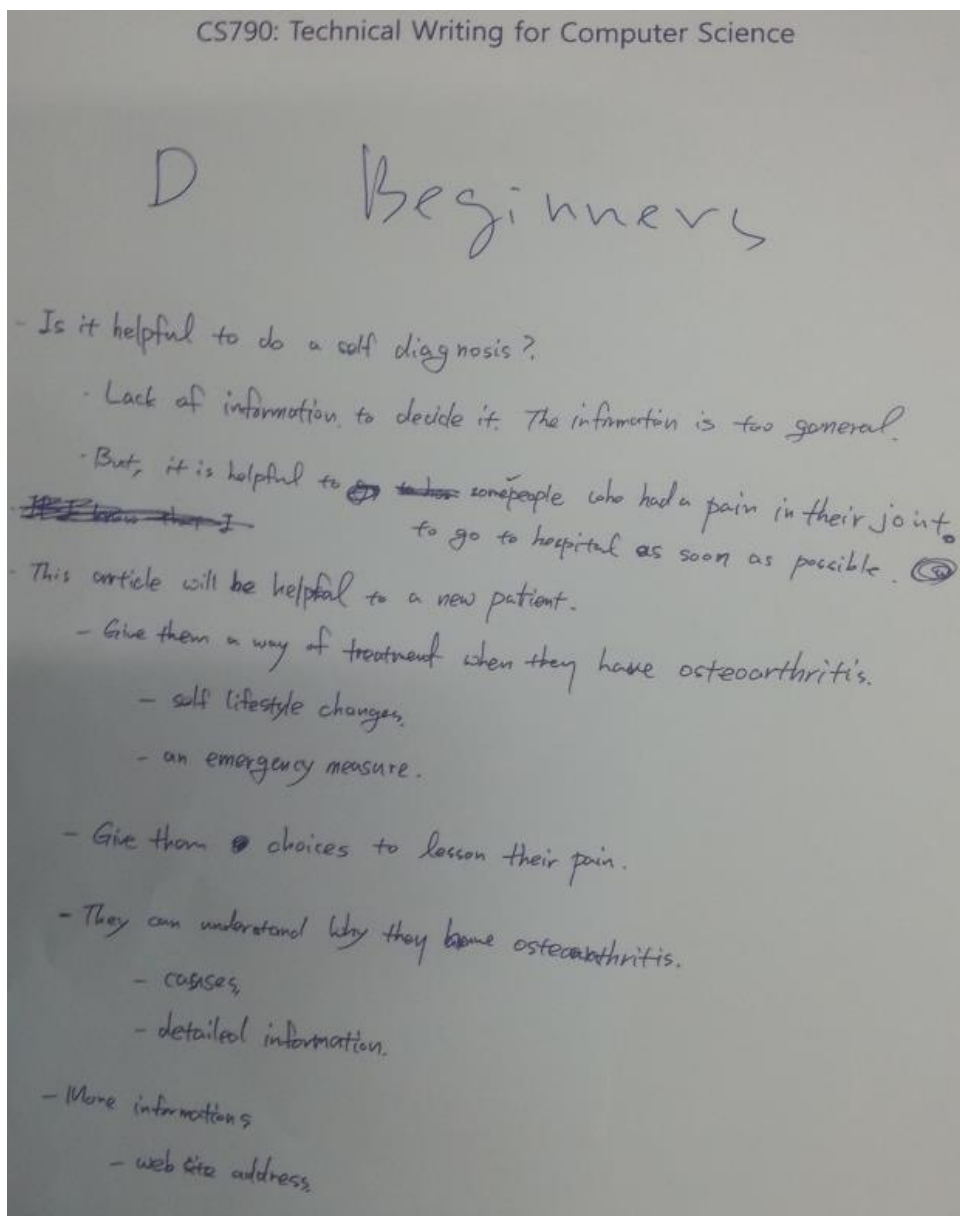 CS790: Technical Writing for Computer Science
D Beginners
- Is it helpful to do a self diagnosis?
· Lack of information, to decide it. The information is too general.
· But, it is helpful to some people who had a pain in their joint.
to go to hospital as soon as possible.
· This article will be helpful to a new patient.
- Give them a way of treatment when they have osteoarthritis.
- self lifestyle changes,
- an emergency measure.
- Give them choices to lesson their pain.
- They can understand why they osteoarthritis.
- causes,
- detailed information.
- More informations
- web site address,